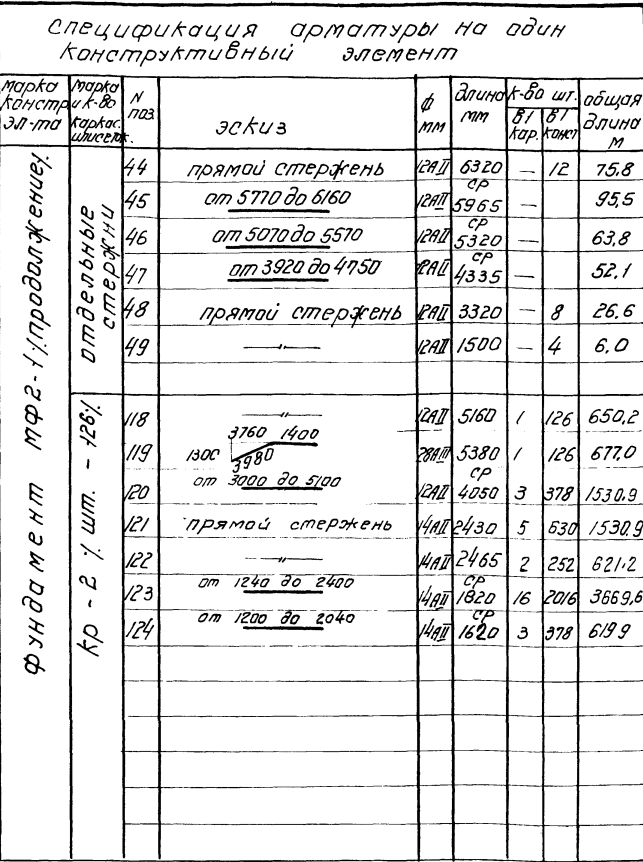 спецификация арматуры на один
конструктивный элемент
марка констр эл-та
марка и к-во каркас.
N поз.
эскиз
ф мм
длина мм
к-во шт.
в 1 кар.
в 1 конст
общая длина м
фундамент МФ2-1 /продолжение/.
отдельные стержни
44 прямой стержень 12АII 6320 — 12 75,8
45 от 5770 до 6160 12АII ср 5965 — 95,5
46 от 5070 до 5570 12АII ср 5320 — 63,8
47 от 3920 до 4750 12АII ср 4335 — 52,1
48 прямой стержень 12АII 3320 — 8 26,6
49 —"— 12АII 1500 — 4 6,0
кр - 2 /. шт. - 126/.
118 —"— 12АII 5160 1 126 650,2
3760 1400
119 1300 3980 28АIII 5380 1 126 677,0
120 от 3000 до 5100 12АII ср 4050 3 378 1530.9
121 прямой стержень 14АII 2430 5 630 1530.9
122 —"— 14АII 2465 2 252 621,2
123 от 1240 до 2400 14АII ср 1820 16 2016 3669,6
124 от 1200 до 2040 14АII ср 1620 3 378 619 9